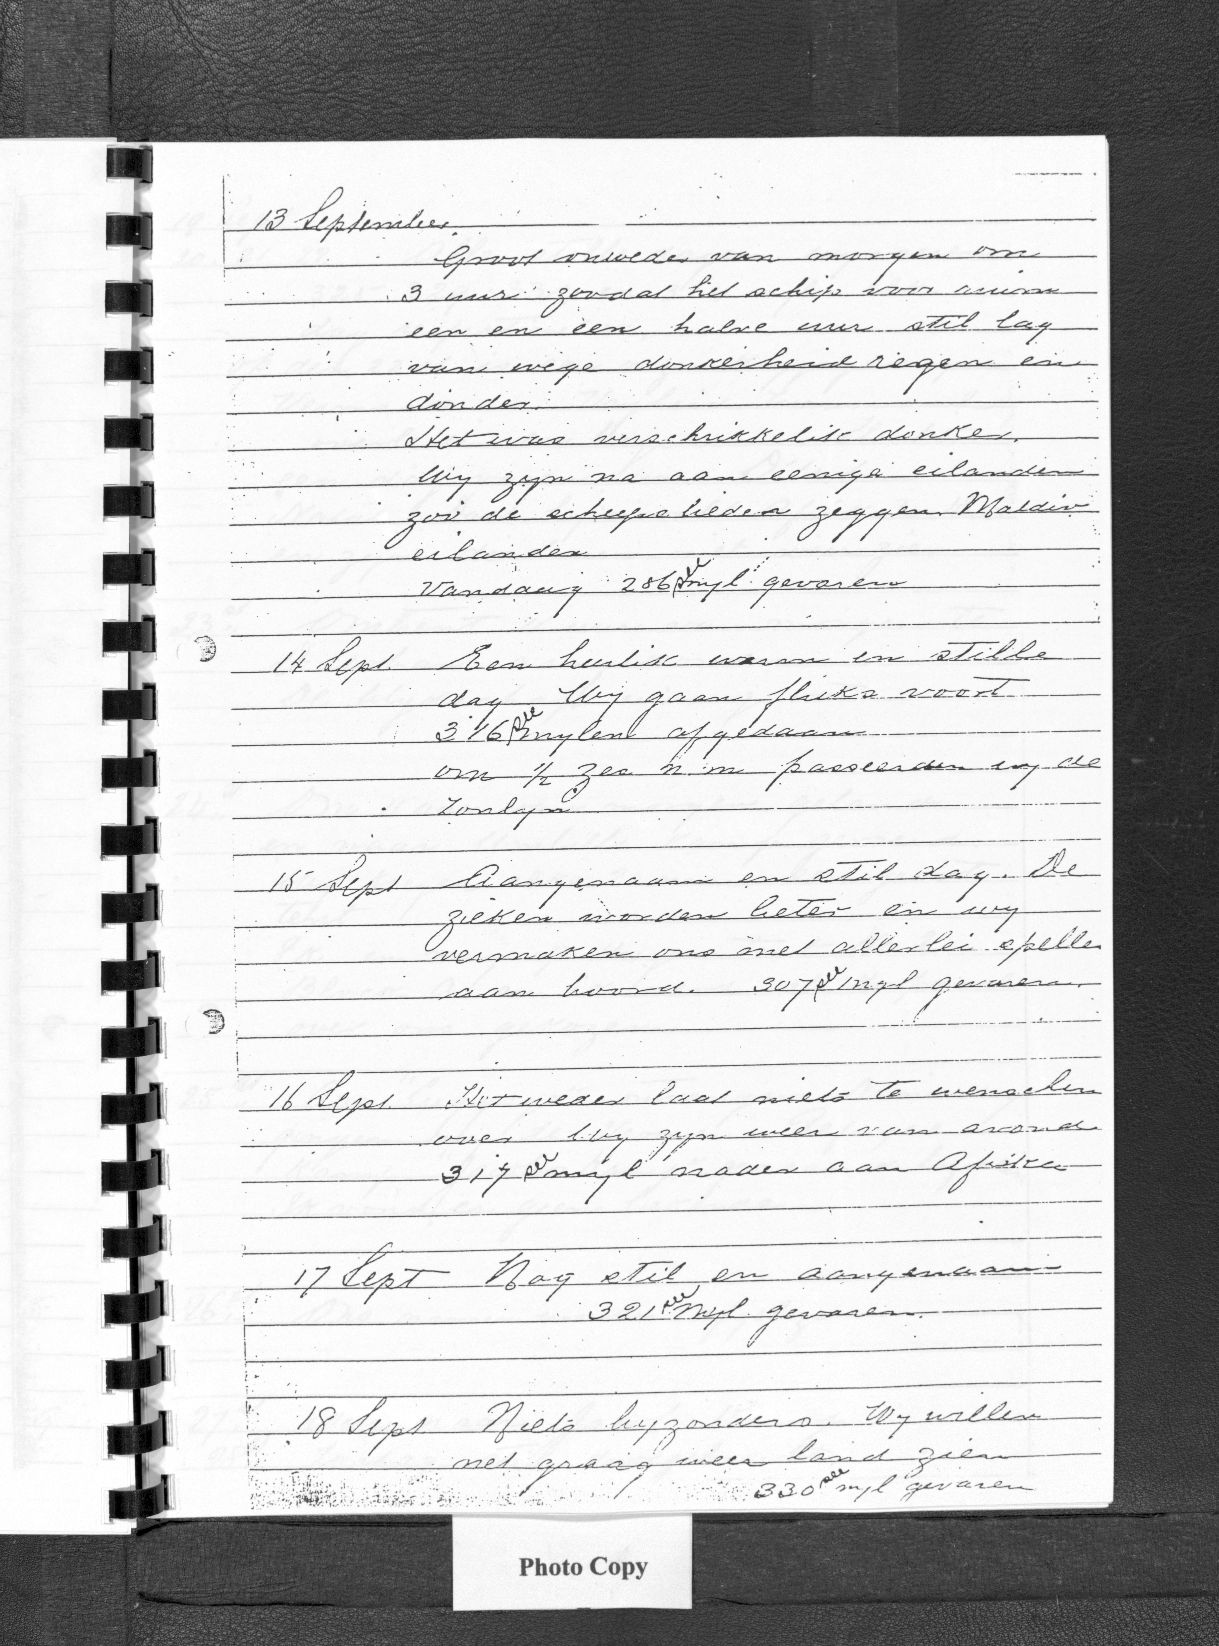 13 September.
Groot onweder van morgen om
3 uur zoodat het schip voor ruim
een en een halve uur stil lag
van wege donkerheid regen en
donder.
Het was verschrikkelik donker.
Wy zyn na aan eenige eilanden
zoo de scheepslieden zeggen Maldiv
eilanden
Vandaag 286 see myl gevaren
14 Sept. Een heerlik warm en stille
dag Wy gaan fluks voort
316 see mylen afgedaan
om 1/2 zes n m passeerden wy de
Zonlyn
15 Sept Aangenaam en stil dag. De
zieken worden beter en wy
vermaken ons met allerlei spelle
aan boord. 307 see myl gevaren.
16 Sept. Het weder laat niets te wenschen
over Wy zyn weer van avond
317 see myl nader aan Afrika
17 Sept Nog stil en aangenaam
321 see myl gevaren.
18 Sept Niets byzonders. Wy willen
net graag weer land zien
330 see myl gevaren
Photo Copy